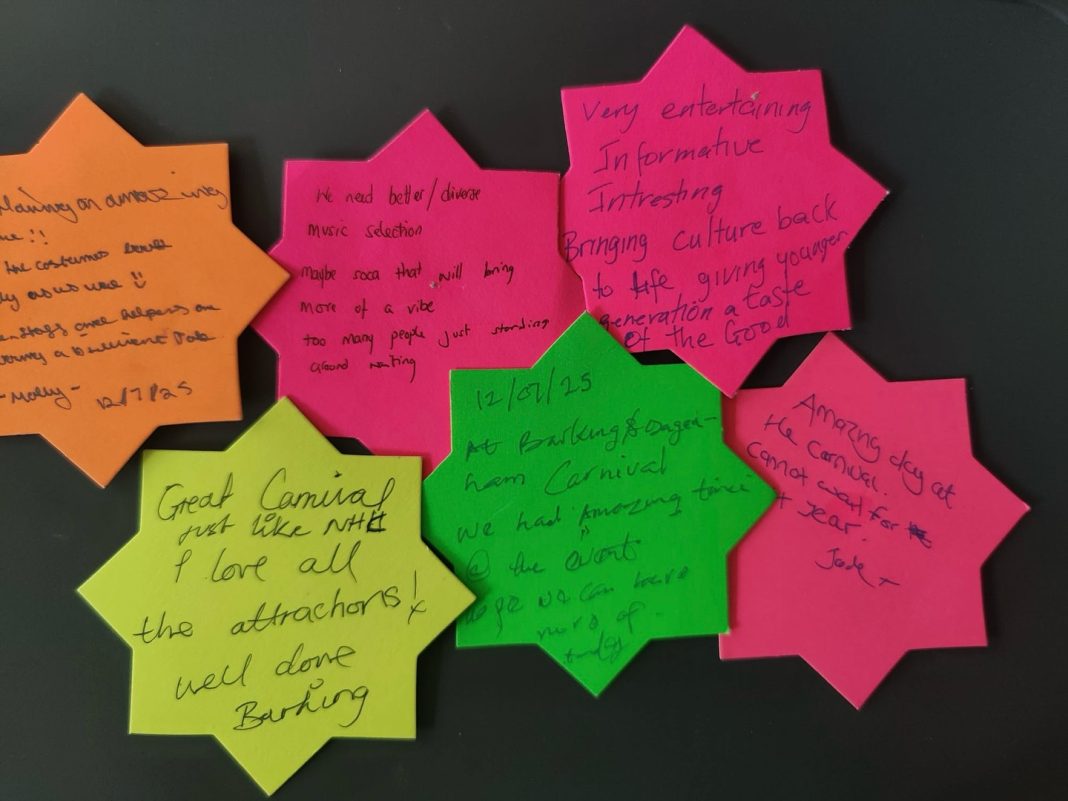 amazing
!!
the costumes
as us use !!
helpers
a
-Molly-
12/7/25
We need better/diverse
music selection
maybe soca that will bring
more of a vibe
too many people just standing
around waiting
Very entertaining
Informative
Intresting
Bringing culture back
to life giving younger
generation a taste
of the Good
Great Carnival
just like NHC
I love all
the attractions! x
well done
Barking
12/07/25
At Barking & Dagen-
ham Carnival
we had Amazing time
@ the event
hope we can have
more of
today
Amazng day at
the Carnival.
Cannot wait for
year.
Jade x